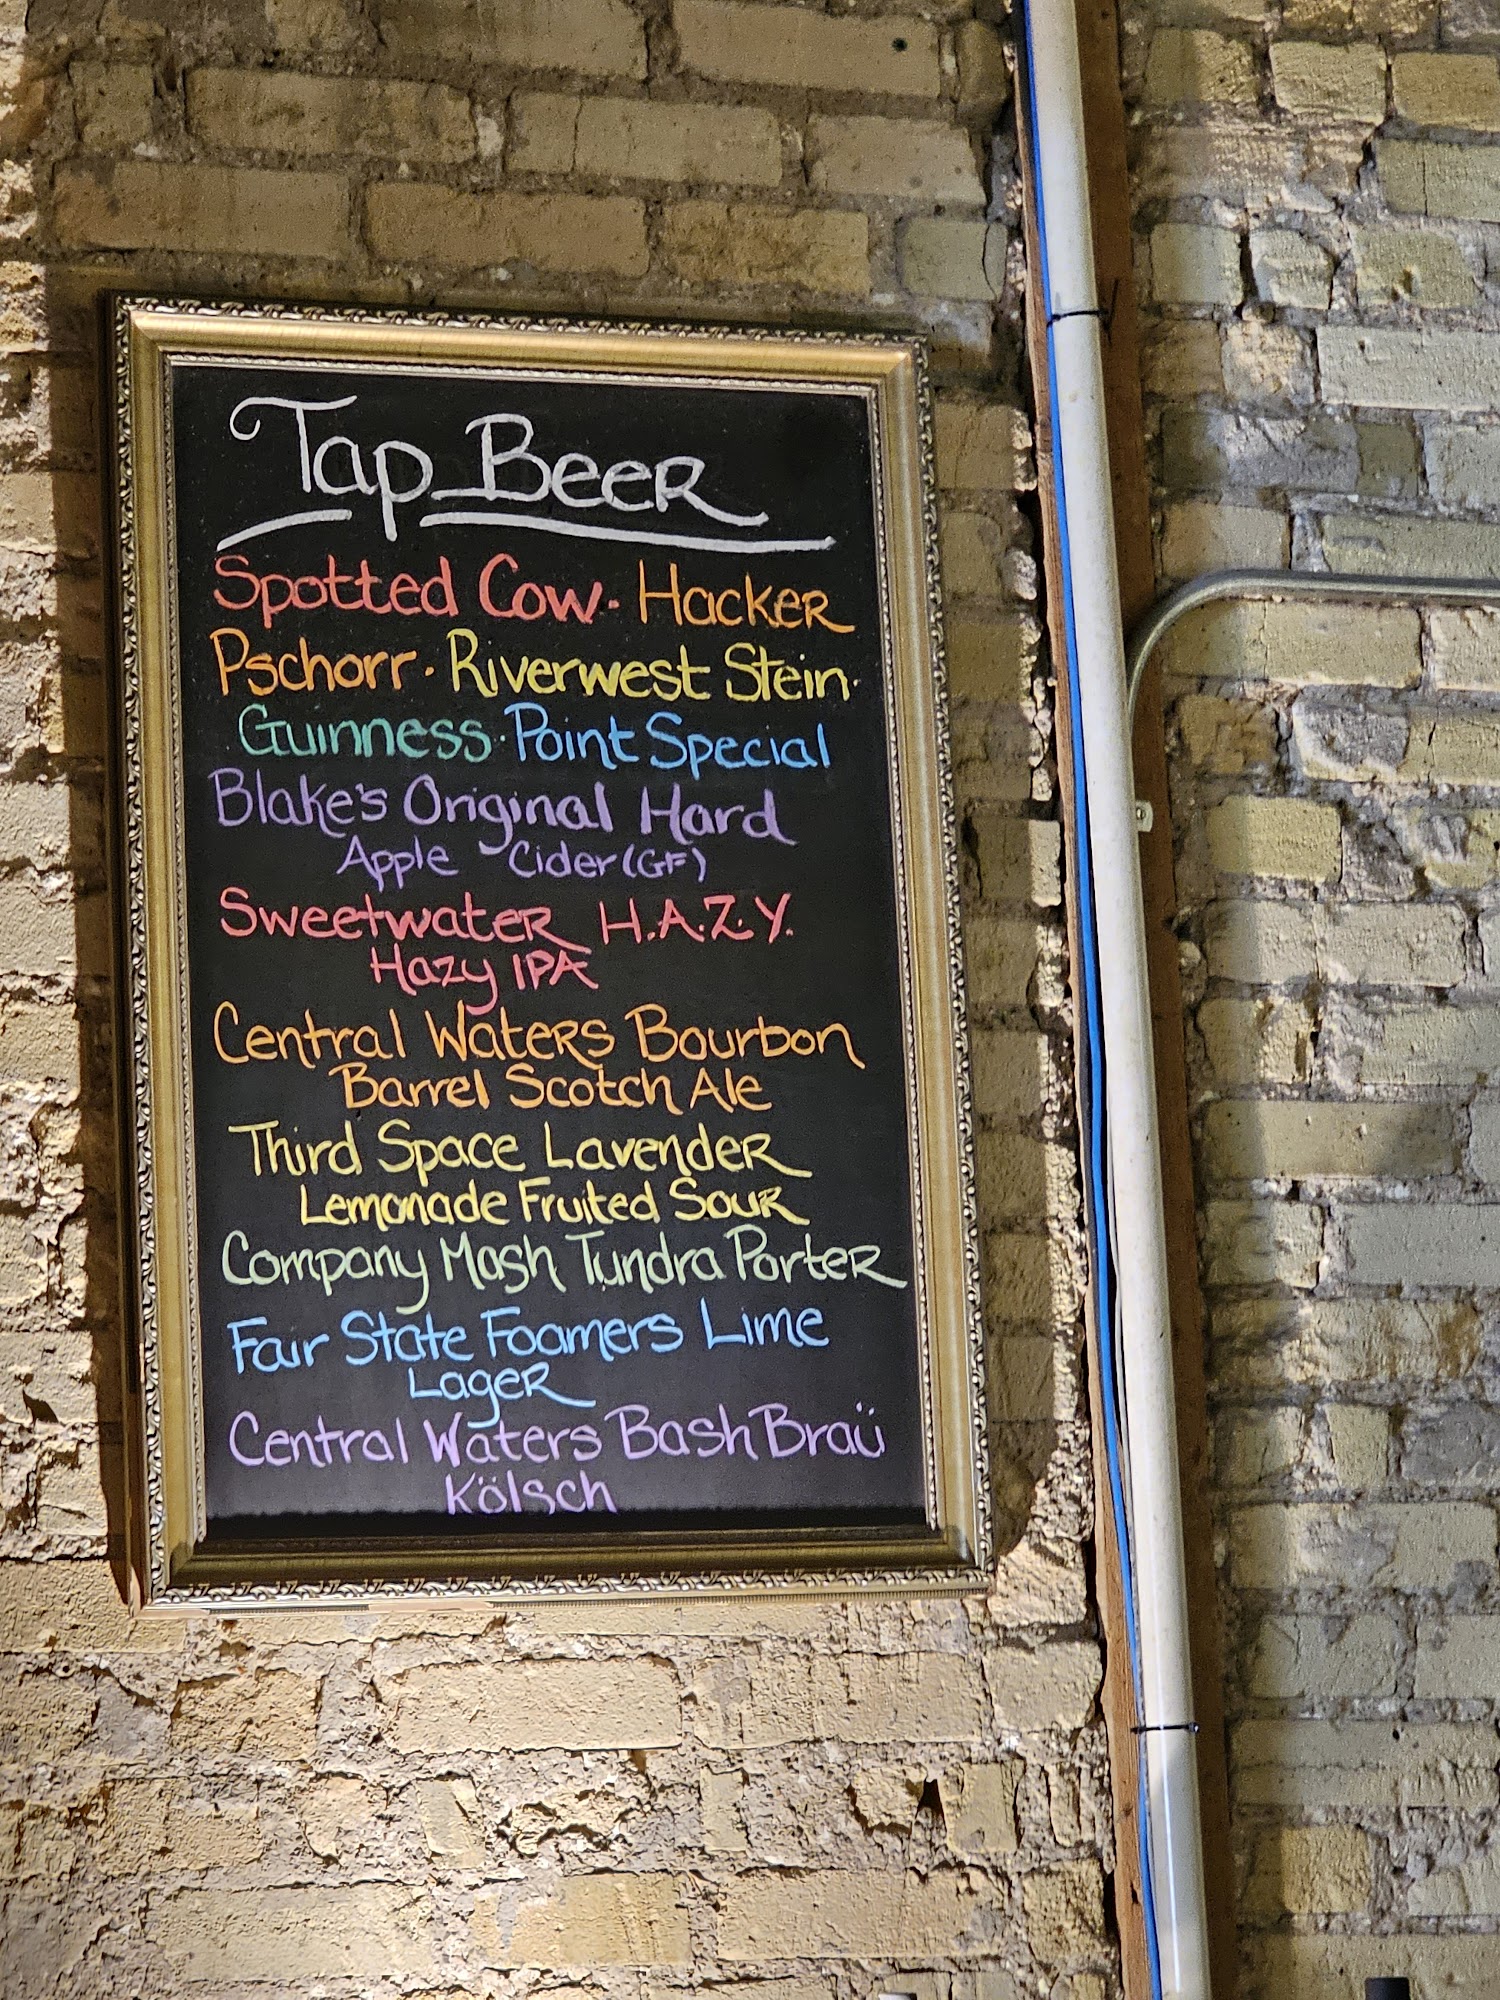 Tap Beer
Spotted Cow · Hacker
Pschorr · Riverwest Stein ·
Guinness · Point Special
Blake's Original Hard
Apple Cider (GF)
Sweetwater H.A.Z.Y.
Hazy IPA
Central Waters Bourbon
Barrel Scotch Ale
Third Space Lavender
Lemonade Fruited Sour
Company Mash Tundra Porter
Fair State Foamers Lime
Lager
Central Waters Bash Braü
Kölsch